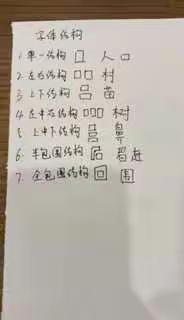 字体结构
1.单一结构 口 人 口
2.左右结构 口口 村
3.上下结构 吕 苗
4.左中右结构 口口口 树
5.上中下结构 鼻
6.半包围结构 赶
7.全包围结构 回 围